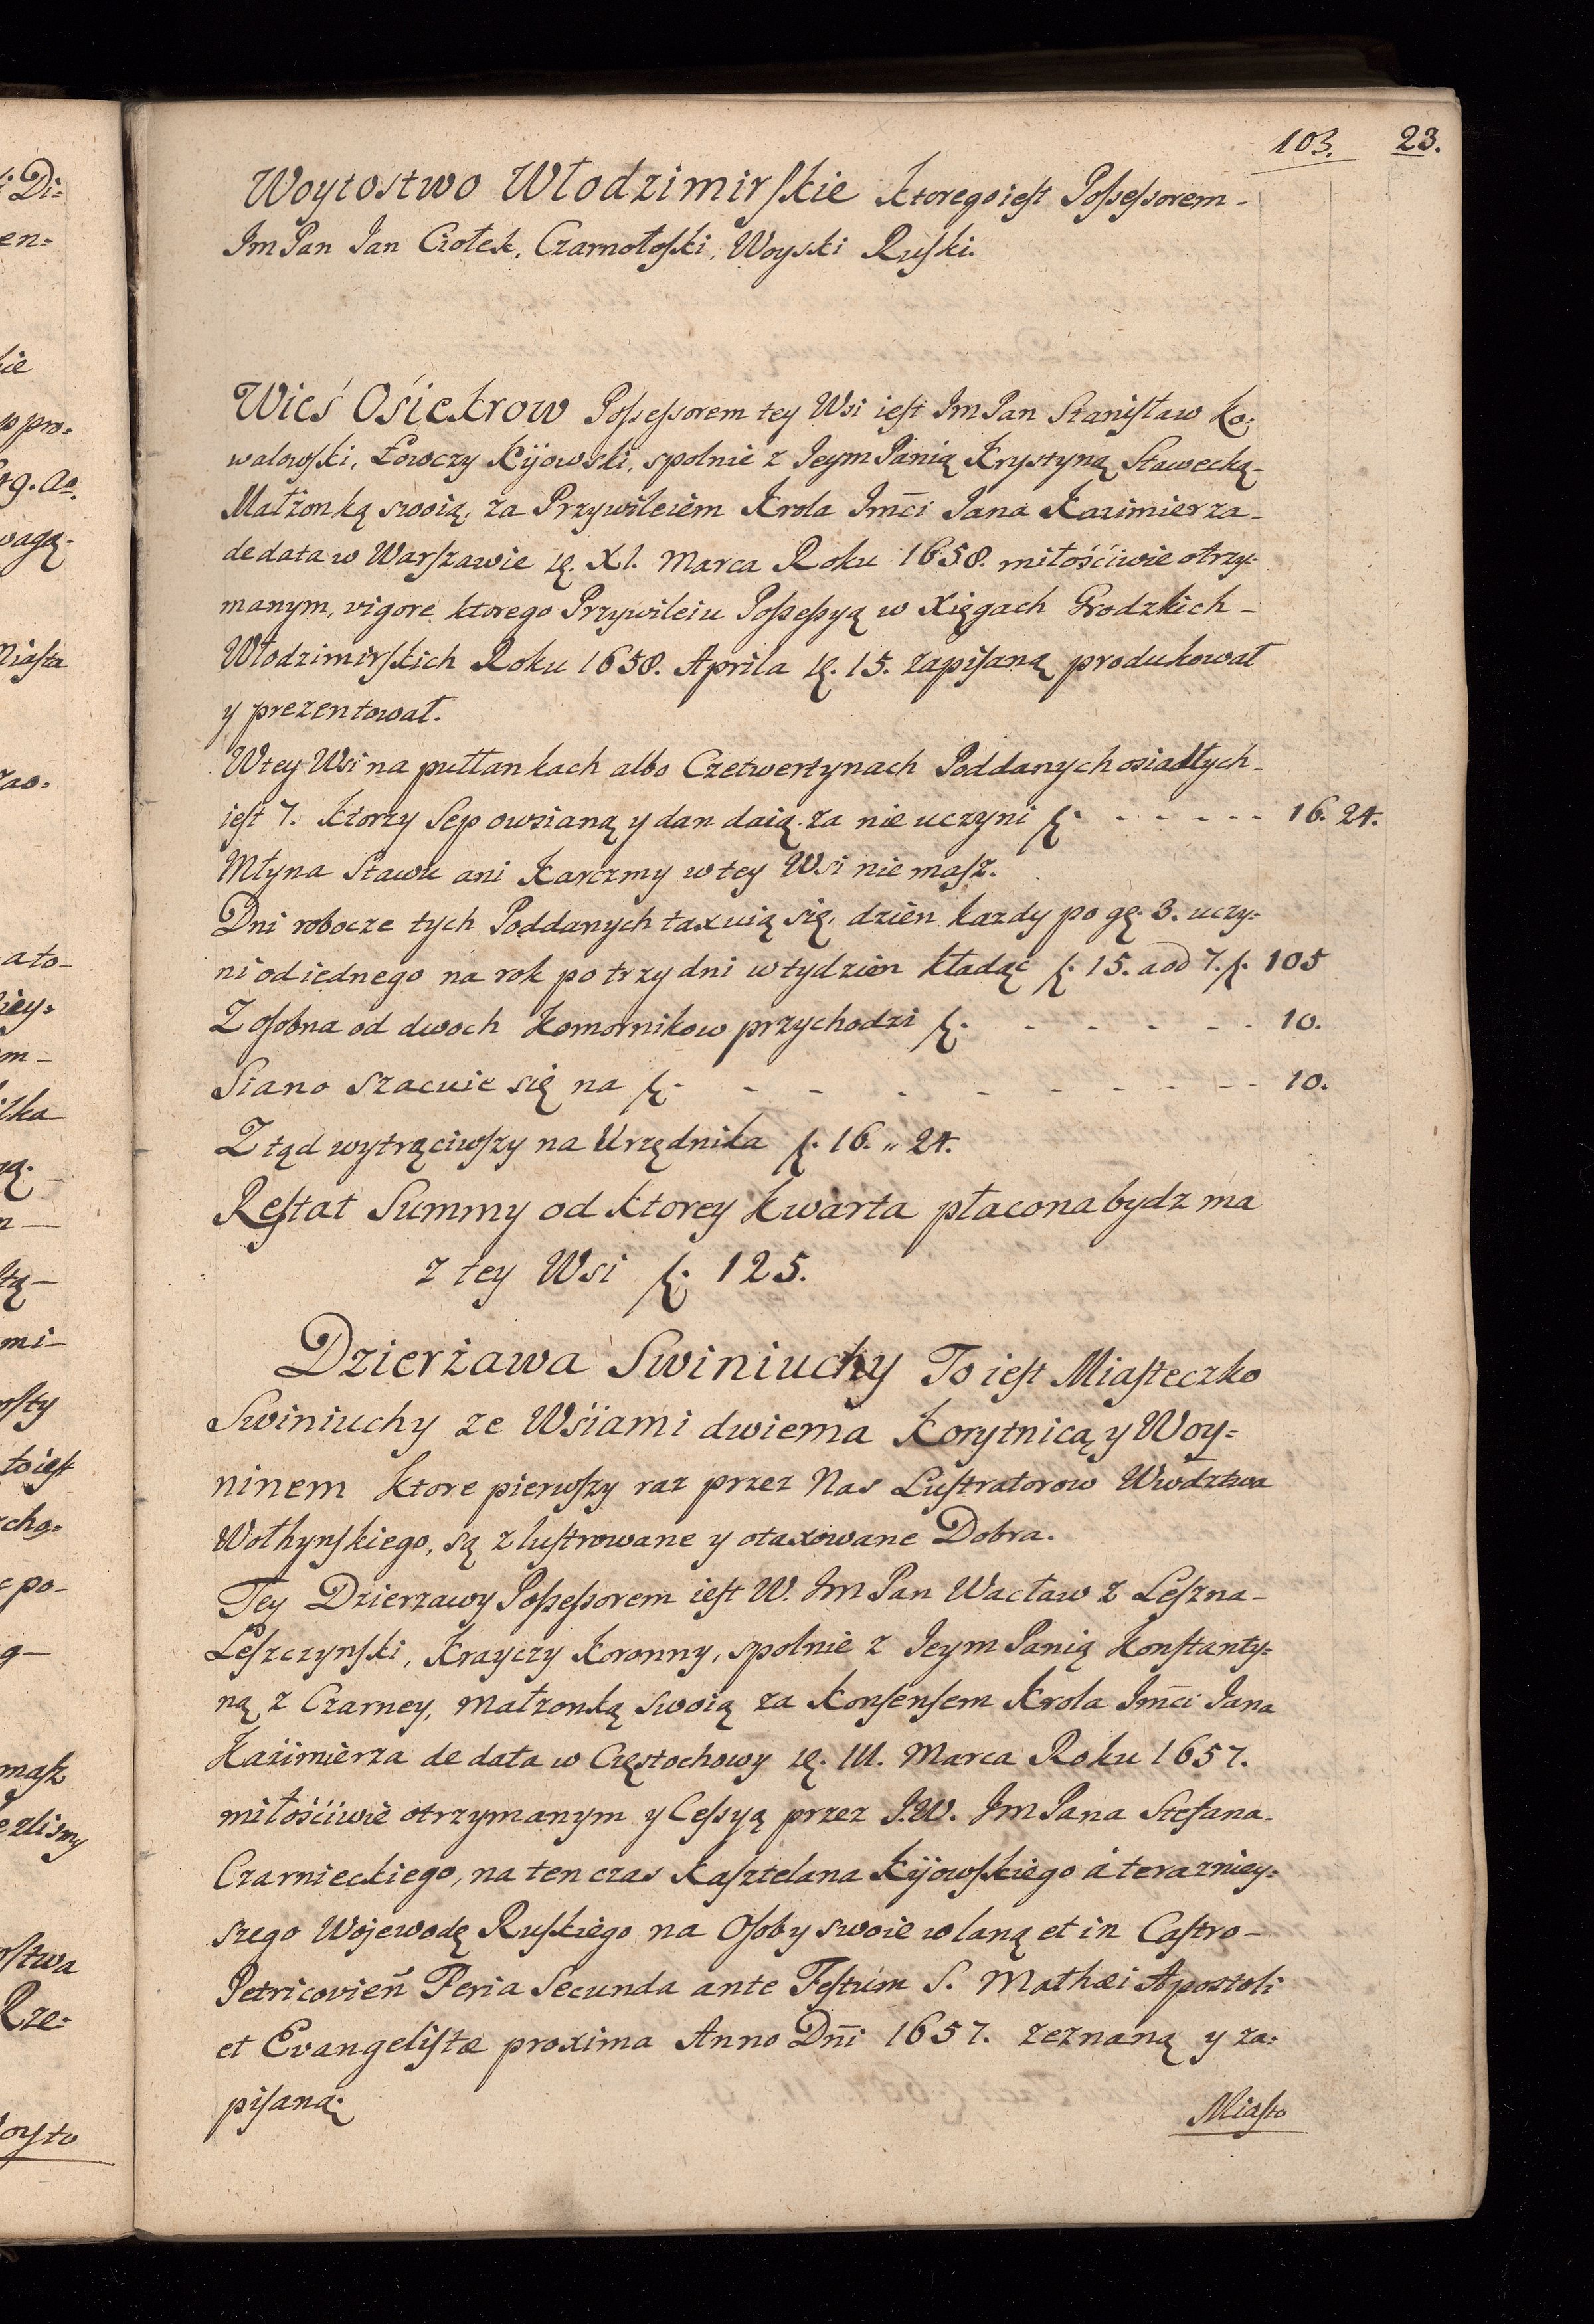 103. 23.
Woytostwo Włodzimirskie ktorego iest Possessorem-
Im Pan Jan Ciołek, Czarnołoski, Woyski Ruski.
Wieś Ośiekrow Possessorem tey Wsi iest Im Pan Stanisław Ko:
walowski, Łowczy Kijowski, spolnie z Jeym Panią Krystyną Stawecką-
Małżonką swoią, za Przywileiem Krola Jmci Jana Kazimierza-
de data w Warszawie  XI. Marca Roku 1658. miłościwie otrzy:
manym, vigore ktorego Przywileiu Possessyą w Xięgach Grodzkich-
Włodzimirskich Roku 1658. Aprila  15. zapisaną produkował
y prezentował.
W tey Wsi na pułłankach albo Czetwertynach Poddanych osiadłych-
iest 7. ktorzy Sep owsianą y dan daią. za nie uczyni f. - - - - - 16. 24.
Młyna Stawu ani Karczmy w tey Wsi nie masz.
Dni robocze tych Poddanych taxuią się, dzien kazdy po g. 3. uczy:
ni od iednego na rok po trzy dni w tydzien kładąc f. 15. a od 7. f. 105
Z osobna od dwoch Komornikow przychodzi f. - - - - - - 10.
Siano szacuie się na f. - - - - - - - - - 10.
Z tąd wytrąciwszy na Urzędnika f. 16. „ 24.
Restat Summy od ktorey kwarta płacona bydz ma
z tey Wsi f. 125.
Dzierżawa Swiniuchy To iest Miasteczko
Swiniuchy ze Wśiami dwiema Korytnicą y Woy=
ninem ktore pierwszy raz przez Nas Lustratorow Wwdztwa
Wołhynskiego, są zlustrowane y otaxowane Dobra.
Tey Dzierzawy Possessorem iest W. Im Pan Wacław z Leszna-
Leszczynski, Krayczy Koronny, spolnie z Jeym Panią Konstanty:
ną z Czarney, małzonką swoią za Konsensem Krola Jmci Jana
Kaźimierza de data w Częstochowy  III. Marca Roku 1657.
miłościwie otrzymanym y Cessyą przez J.W. Im Pana Stefana-
Czarnieckiego, na ten czas Kasztelana Kijowskiego á terazniey:
szego Wojewodę Ruskiego na Osoby swoie wlaną et in Castro-
Petricovień Feria Secunda ante Festum S. Mathæi Apostoli
et Evangelistæ proxima Anno Dni 1657. zeznaną y za:
pisaną.
Miasto